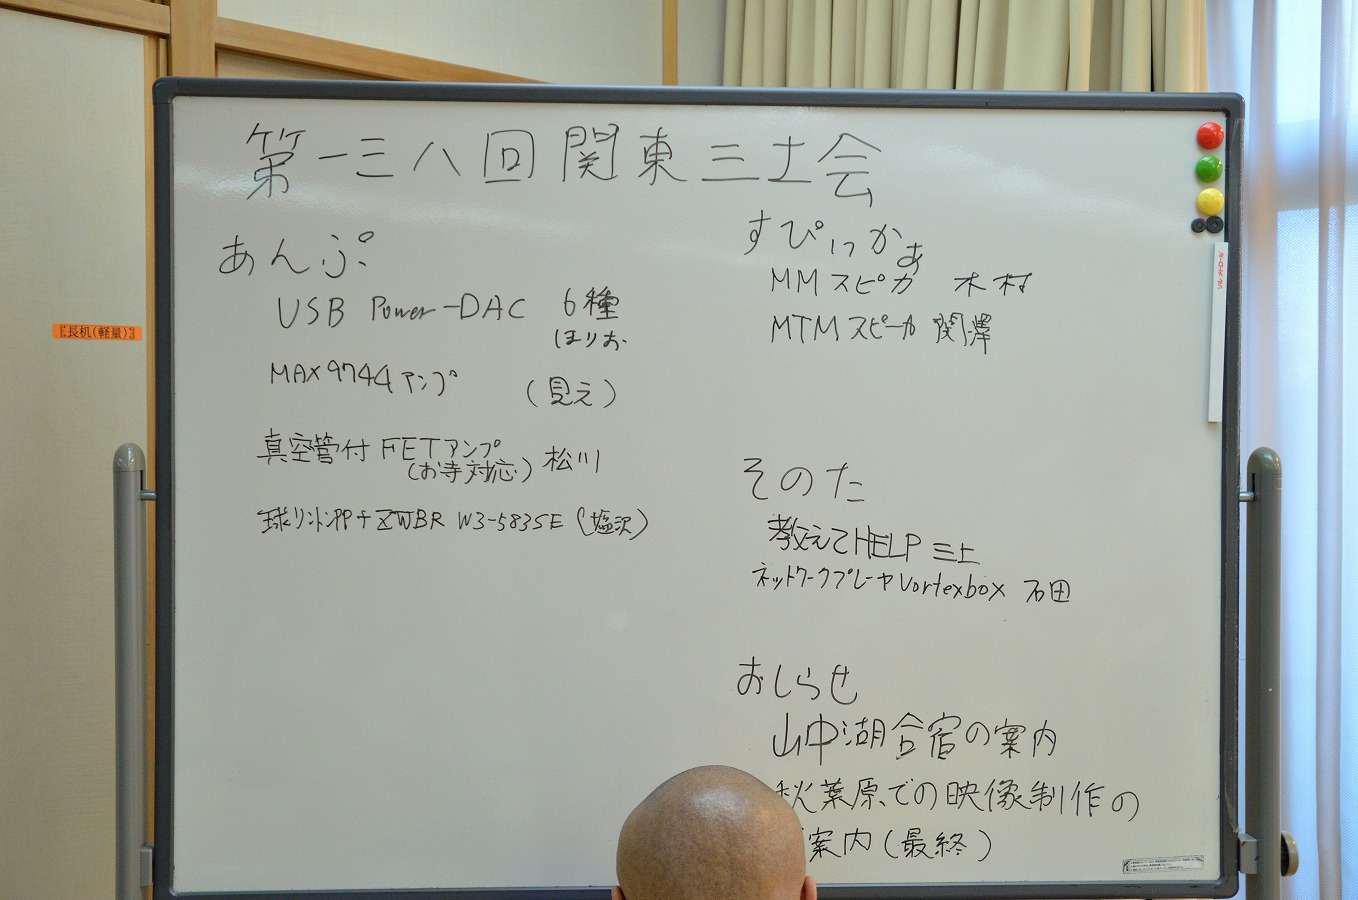 第一三八回関東三土会
あんぷ
USB Power-DAC 6種
ほりお
MAX9744アンプ (見え)
真空管付FETアンプ 松川
(お寺対応)
球リントンPP+ZWBR W3-583SE (塩沢)
すぴいかあ
MMスピカ 木村
MTMスピーカ 関澤
そのた
教えてHELP 三上
ネットワークプレーヤVortexbox 石田
おしらせ
山中湖合宿の案内
秋葉原での映像制作の
案内(最終)
『長机(軽量)』